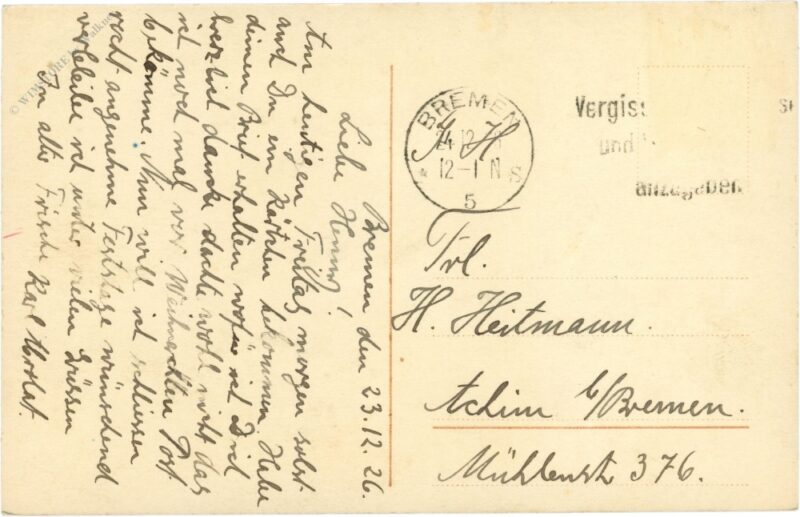 Bremen den 23.12.26.
Liebe Henny!
Am heutigen Freitag morgen solst
auch Du ein Kärtchen bekommen, Habe
deinen Brief erhalten wofür ich Dir
herzlich danke dachte wohl nicht das
ich noch mal vor Weihnachten Post
bekomme. Nun will ich schliessen
recht angenehme Festtage wünschend
verbleibe ich unter vielen Grüssen
In alter Frische Karl
BREMEN
24.12.
12-1 N
* S
5
Vergiss
und
anzugeben
Frl.
H. Heitmann.
Achim b/Bremen.
Mühlenstr 376.